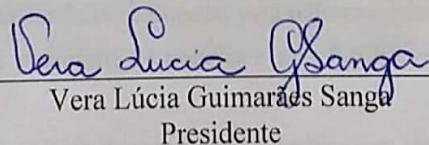 Vera Lucia GSanga
Vera Lúcia Guimarães Sanga
Presidente